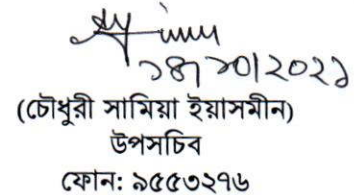 ১৪/১০/2021
(চৌধুরী সামিয়া ইয়াসমীন)
উপসচিব
ফোন: ৯৫৫৩২৭৬